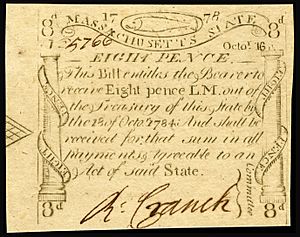 8d 17 78 8d
MASSACHUSETTS STATE
5766 Octor. 16
EIGHT PENCE.
This Bill entitles the Bearer to
receive Eight pence L M. out of
the Treasury of this State by
the 18. of Octor. 1784; And shall be
received for that sum in all
payments Agreeable to an
Act of said State.
EIGHT PENCE
EIGHT PENCE
Committee
8d R. Cranch 8d